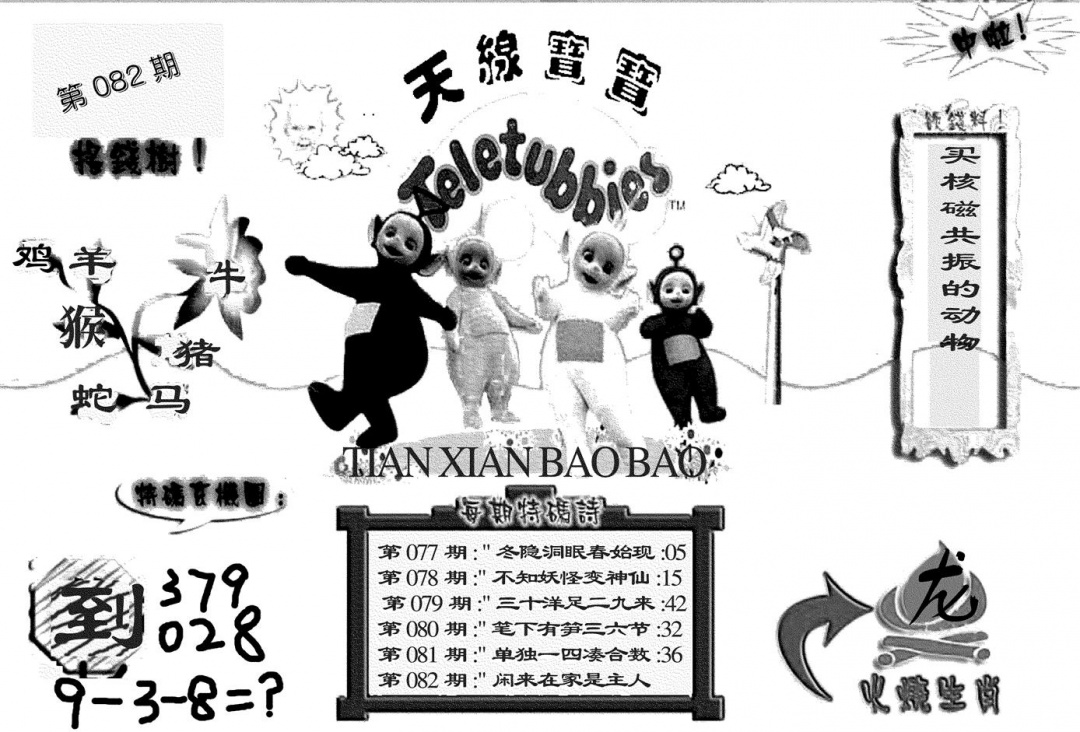 第 082 期
天線寶寶
中啦！
Teletubbies
TM
搖錢樹！
鸡 羊
牛
猴
猪
蛇 马
买核磁共振的动物
TIAN XIAN BAO BAO
特碼玄機圖：
每期特碼詩
第 077 期 :" 冬隐洞眠春始现 :05
第 078 期 :" 不知妖怪变神仙 :15
第 079 期 :" 三十洋足二九来 :42
第 080 期 :" 笔下有笋三六节 :32
第 081 期 :" 单独一四凑合数 :36
第 082 期 :" 闲来在家是主人
到
379
028
9-3-8=?
龙
火燒生肖